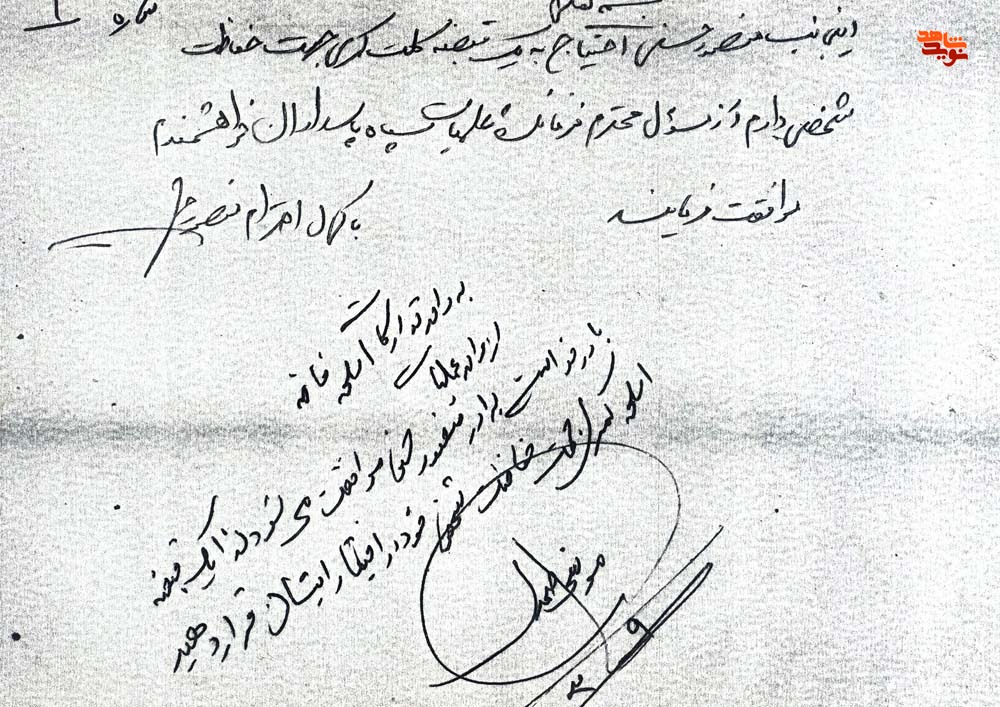 نوید شاهد
اینجانب منصور حسنی احتیاج به یک قبضه کلت کمری جهت حفاظت
شخصی دارم از مسئول محترم فرمانده عملیات سپاه پاسداران خواهشمندم
موافقت فرمایند
با کمال احترام منصور
به واحد تدارکات اسلحه خانه
از واحد عملیات
با درخواست برادر منصور حسنی موافقت می شود لذا یک قبضه
اسلحه کمری جهت حفاظت شخصی خود در اختیار ایشان قرار دهید